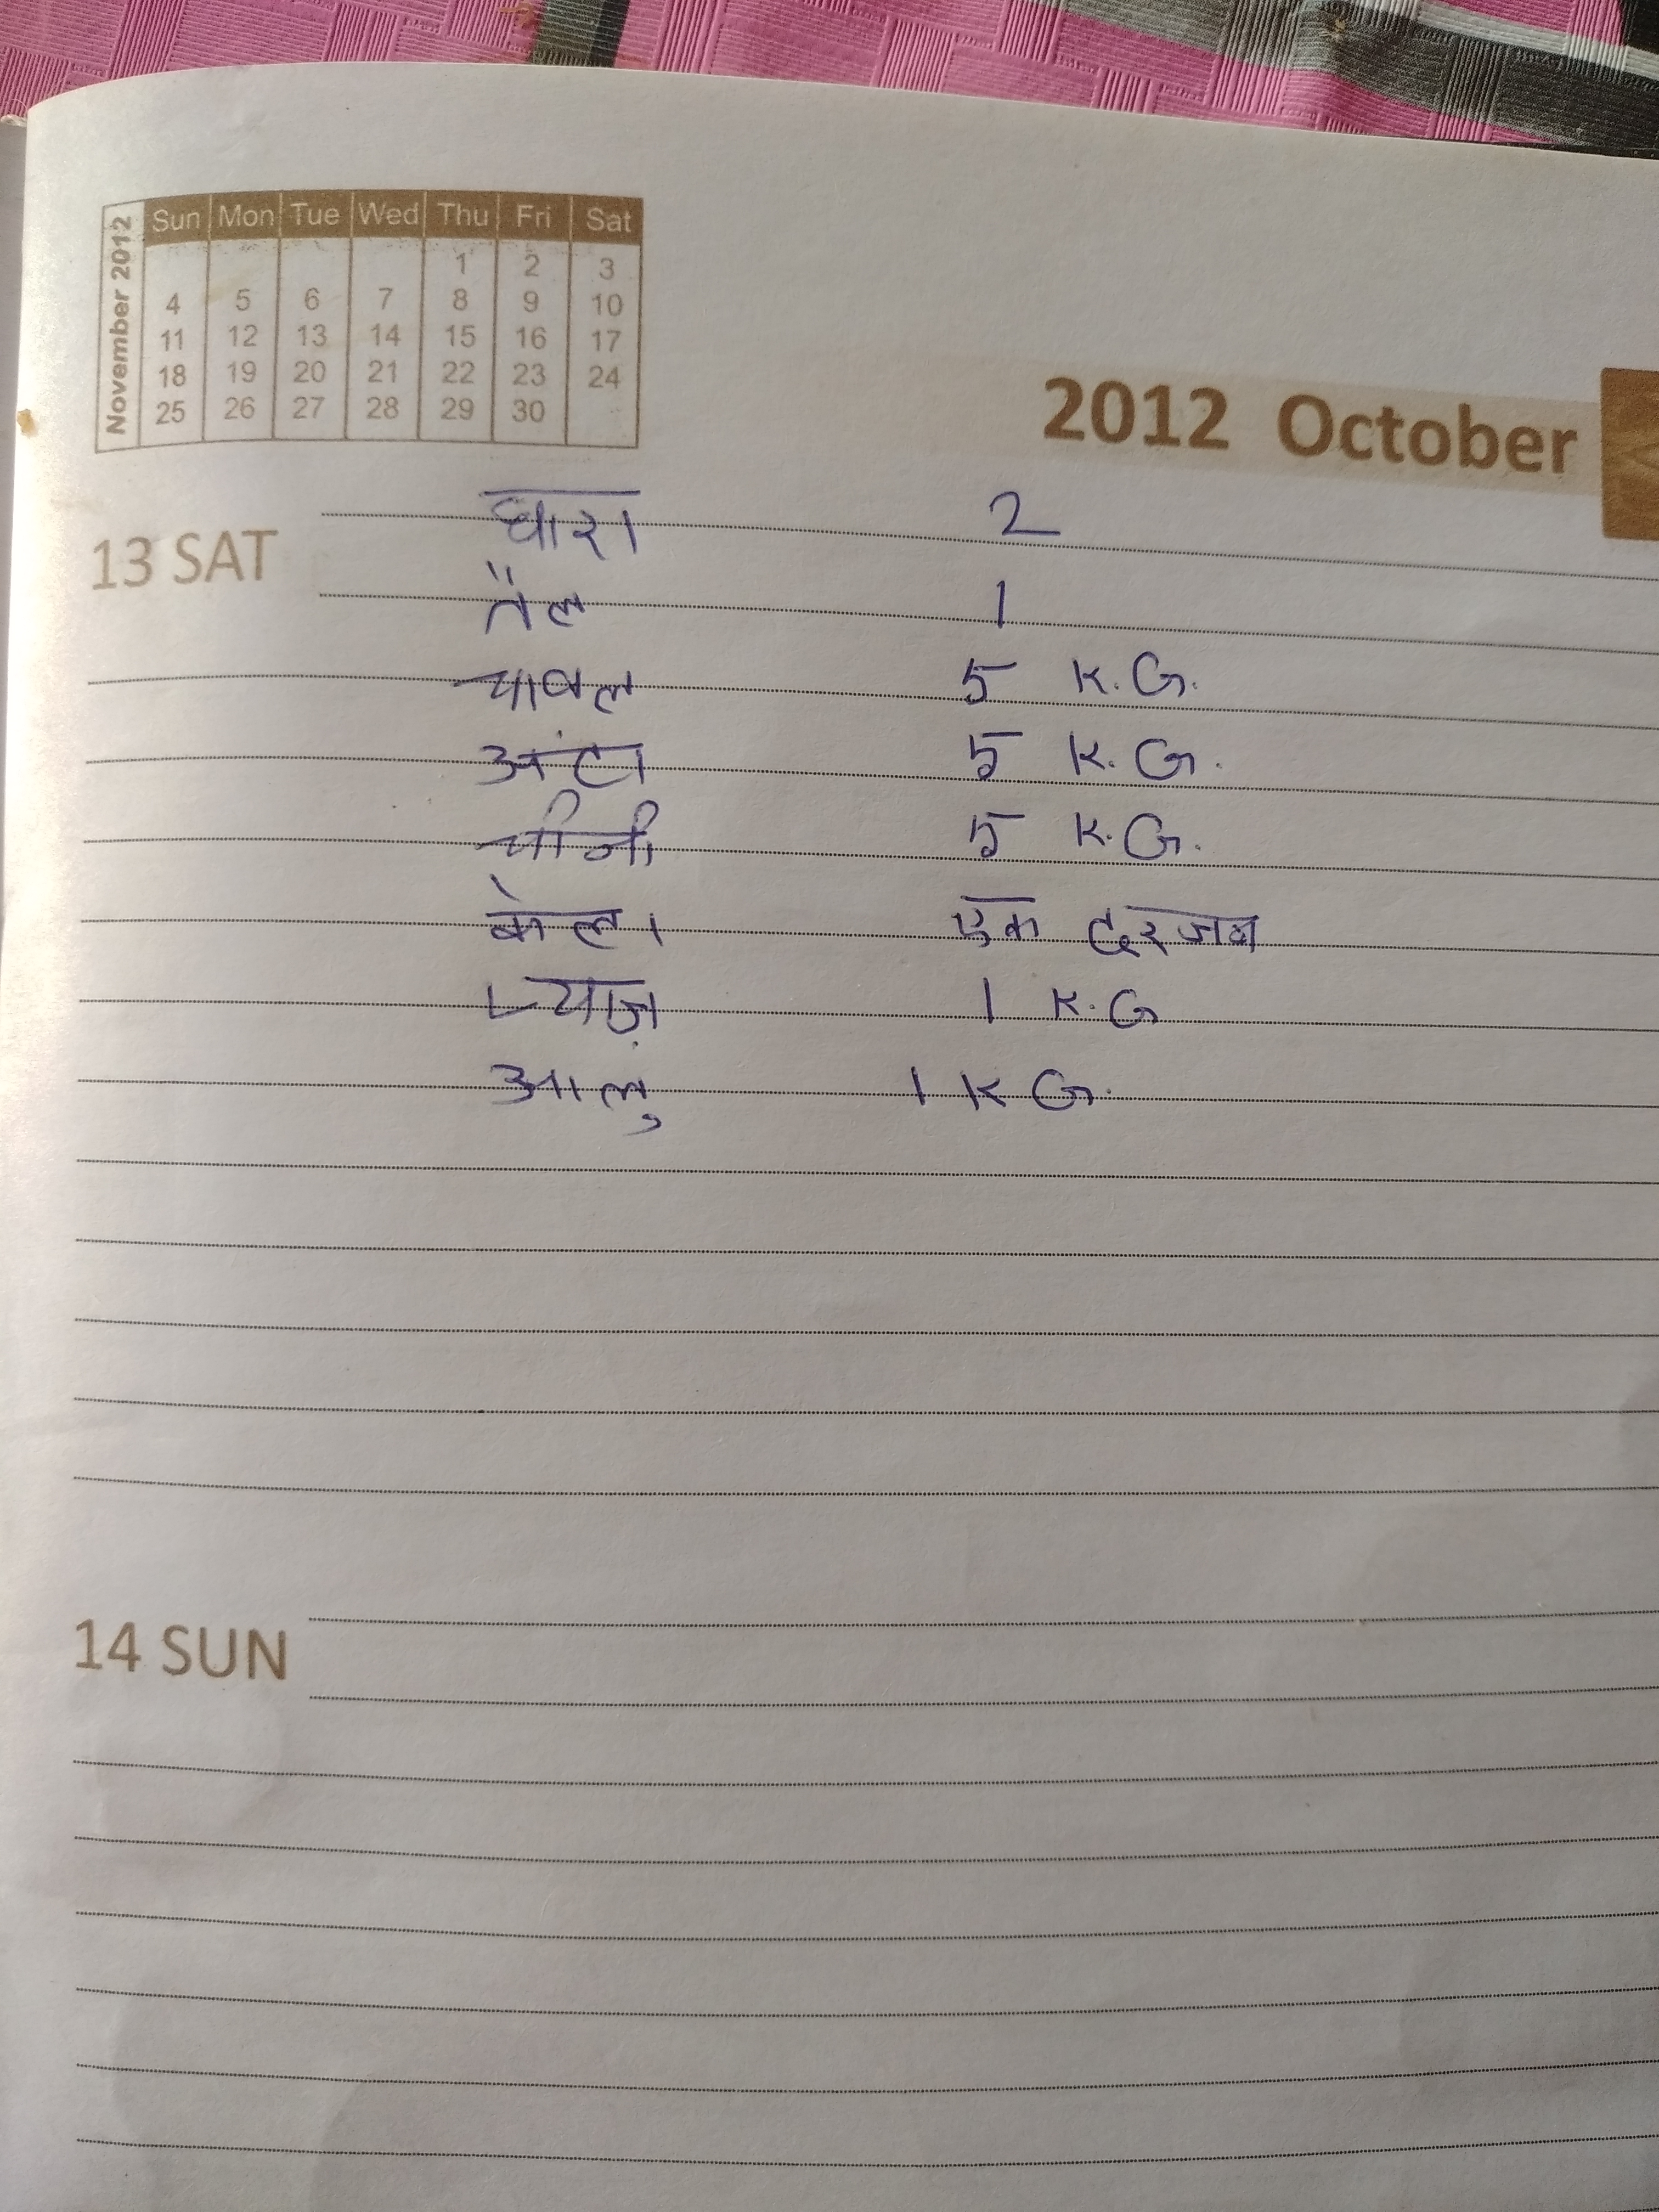 November 2012
Sun Mon Tue Wed Thu Fri Sat
1 2 3
4 5 6 7 8 9 10
11 12 13 14 15 16 17
18 19 20 21 22 23 24
25 26 27 28 29 30
2012 October
13 SAT
धारा 2
तैल 1
चावल 5 K.G.
अंटा 5 K.G.
चीनी 5 K.G.
केला एक दरजन
प्याज़ 1 K.G
आलु 1 K G.
14 SUN